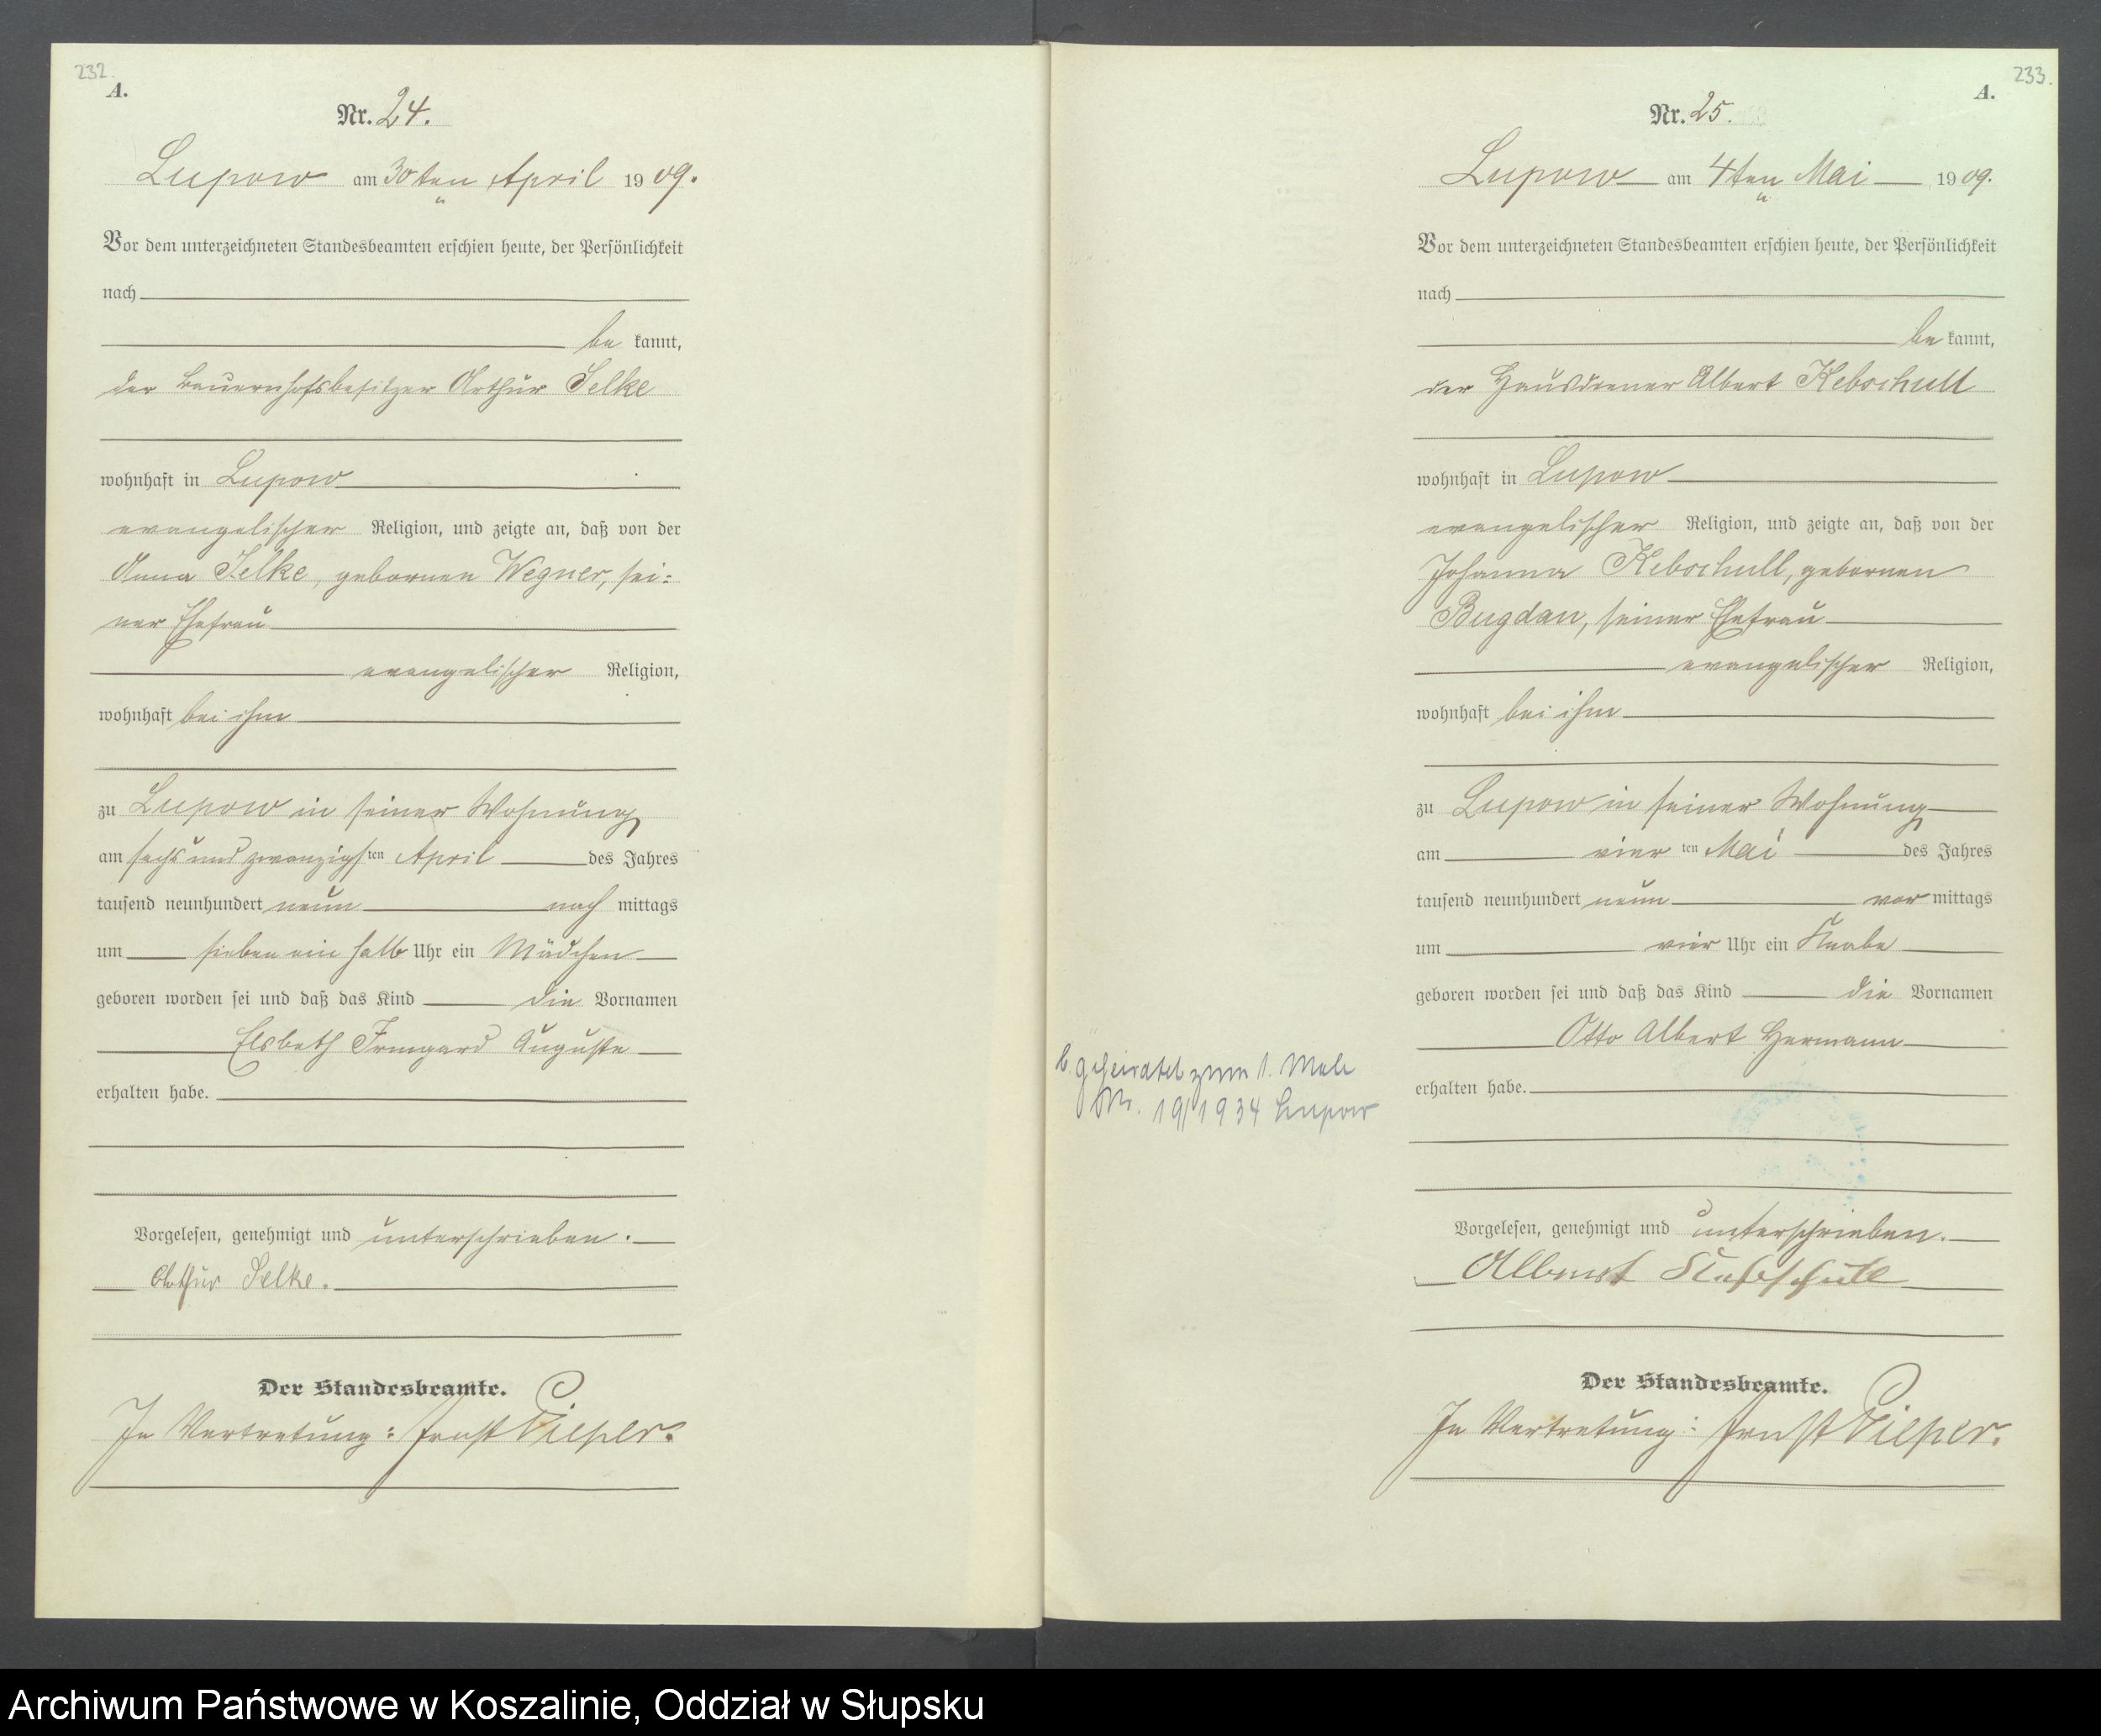 232.
A.
Nr. 24.
Lupow am 30ten April 1909.
Vor dem unterzeichneten Standesbeamten erschien heute, der Persönlichkeit
nach
be kannt,
der Bauernhofsbesitzer Arthur Selke
wohnhaft in Lupow
evangelischer Religion, und zeigte an, daß von der
Anna Selke, geborenen Wegner, sei-
ner Ehefrau
evangelischer Religion,
wohnhaft bei ihm
zu Lupow in seiner Wohnung
am sechs und zwanzigsten April des Jahres
tausend neunhundert neun nach mittags
um sieben ein halb Uhr ein Mädchen
geboren worden sei und daß das Kind die Vornamen
Elsbeth Irmgard Auguste
erhalten habe.
Vorgelesen, genehmigt und unterschrieben.
Arthur Selke.
Der Standesbeamte.
In Vertretung: Ernst Pieper.
233.
A.
Nr. 25.
Lupow am 4ten Mai 1909.
Vor dem unterzeichneten Standesbeamten erschien heute, der Persönlichkeit
nach
be kannt,
der Hausdiener Albert Kebschull
wohnhaft in Lupow
evangelischer Religion, und zeigte an, daß von der
Johanna Kebschull, geborenen
Bugdan, seiner Ehefrau
evangelischer Religion,
wohnhaft bei ihm
zu Lupow in seiner Wohnung
am vier ten Mai des Jahres
tausend neunhundert neun vor mittags
um vier Uhr ein Knabe
geboren worden sei und daß das Kind die Vornamen
Otto Albert Hermann
erhalten habe.
geheiratet zum 1. Male
Nr. 19/1934 Lupow
Vorgelesen, genehmigt und unterschrieben.
Albert Kebschull
Der Standesbeamte.
In Vertretung: Ernst Pieper.
Archiwum Państwowe w Koszalinie, Oddział w Słupsku